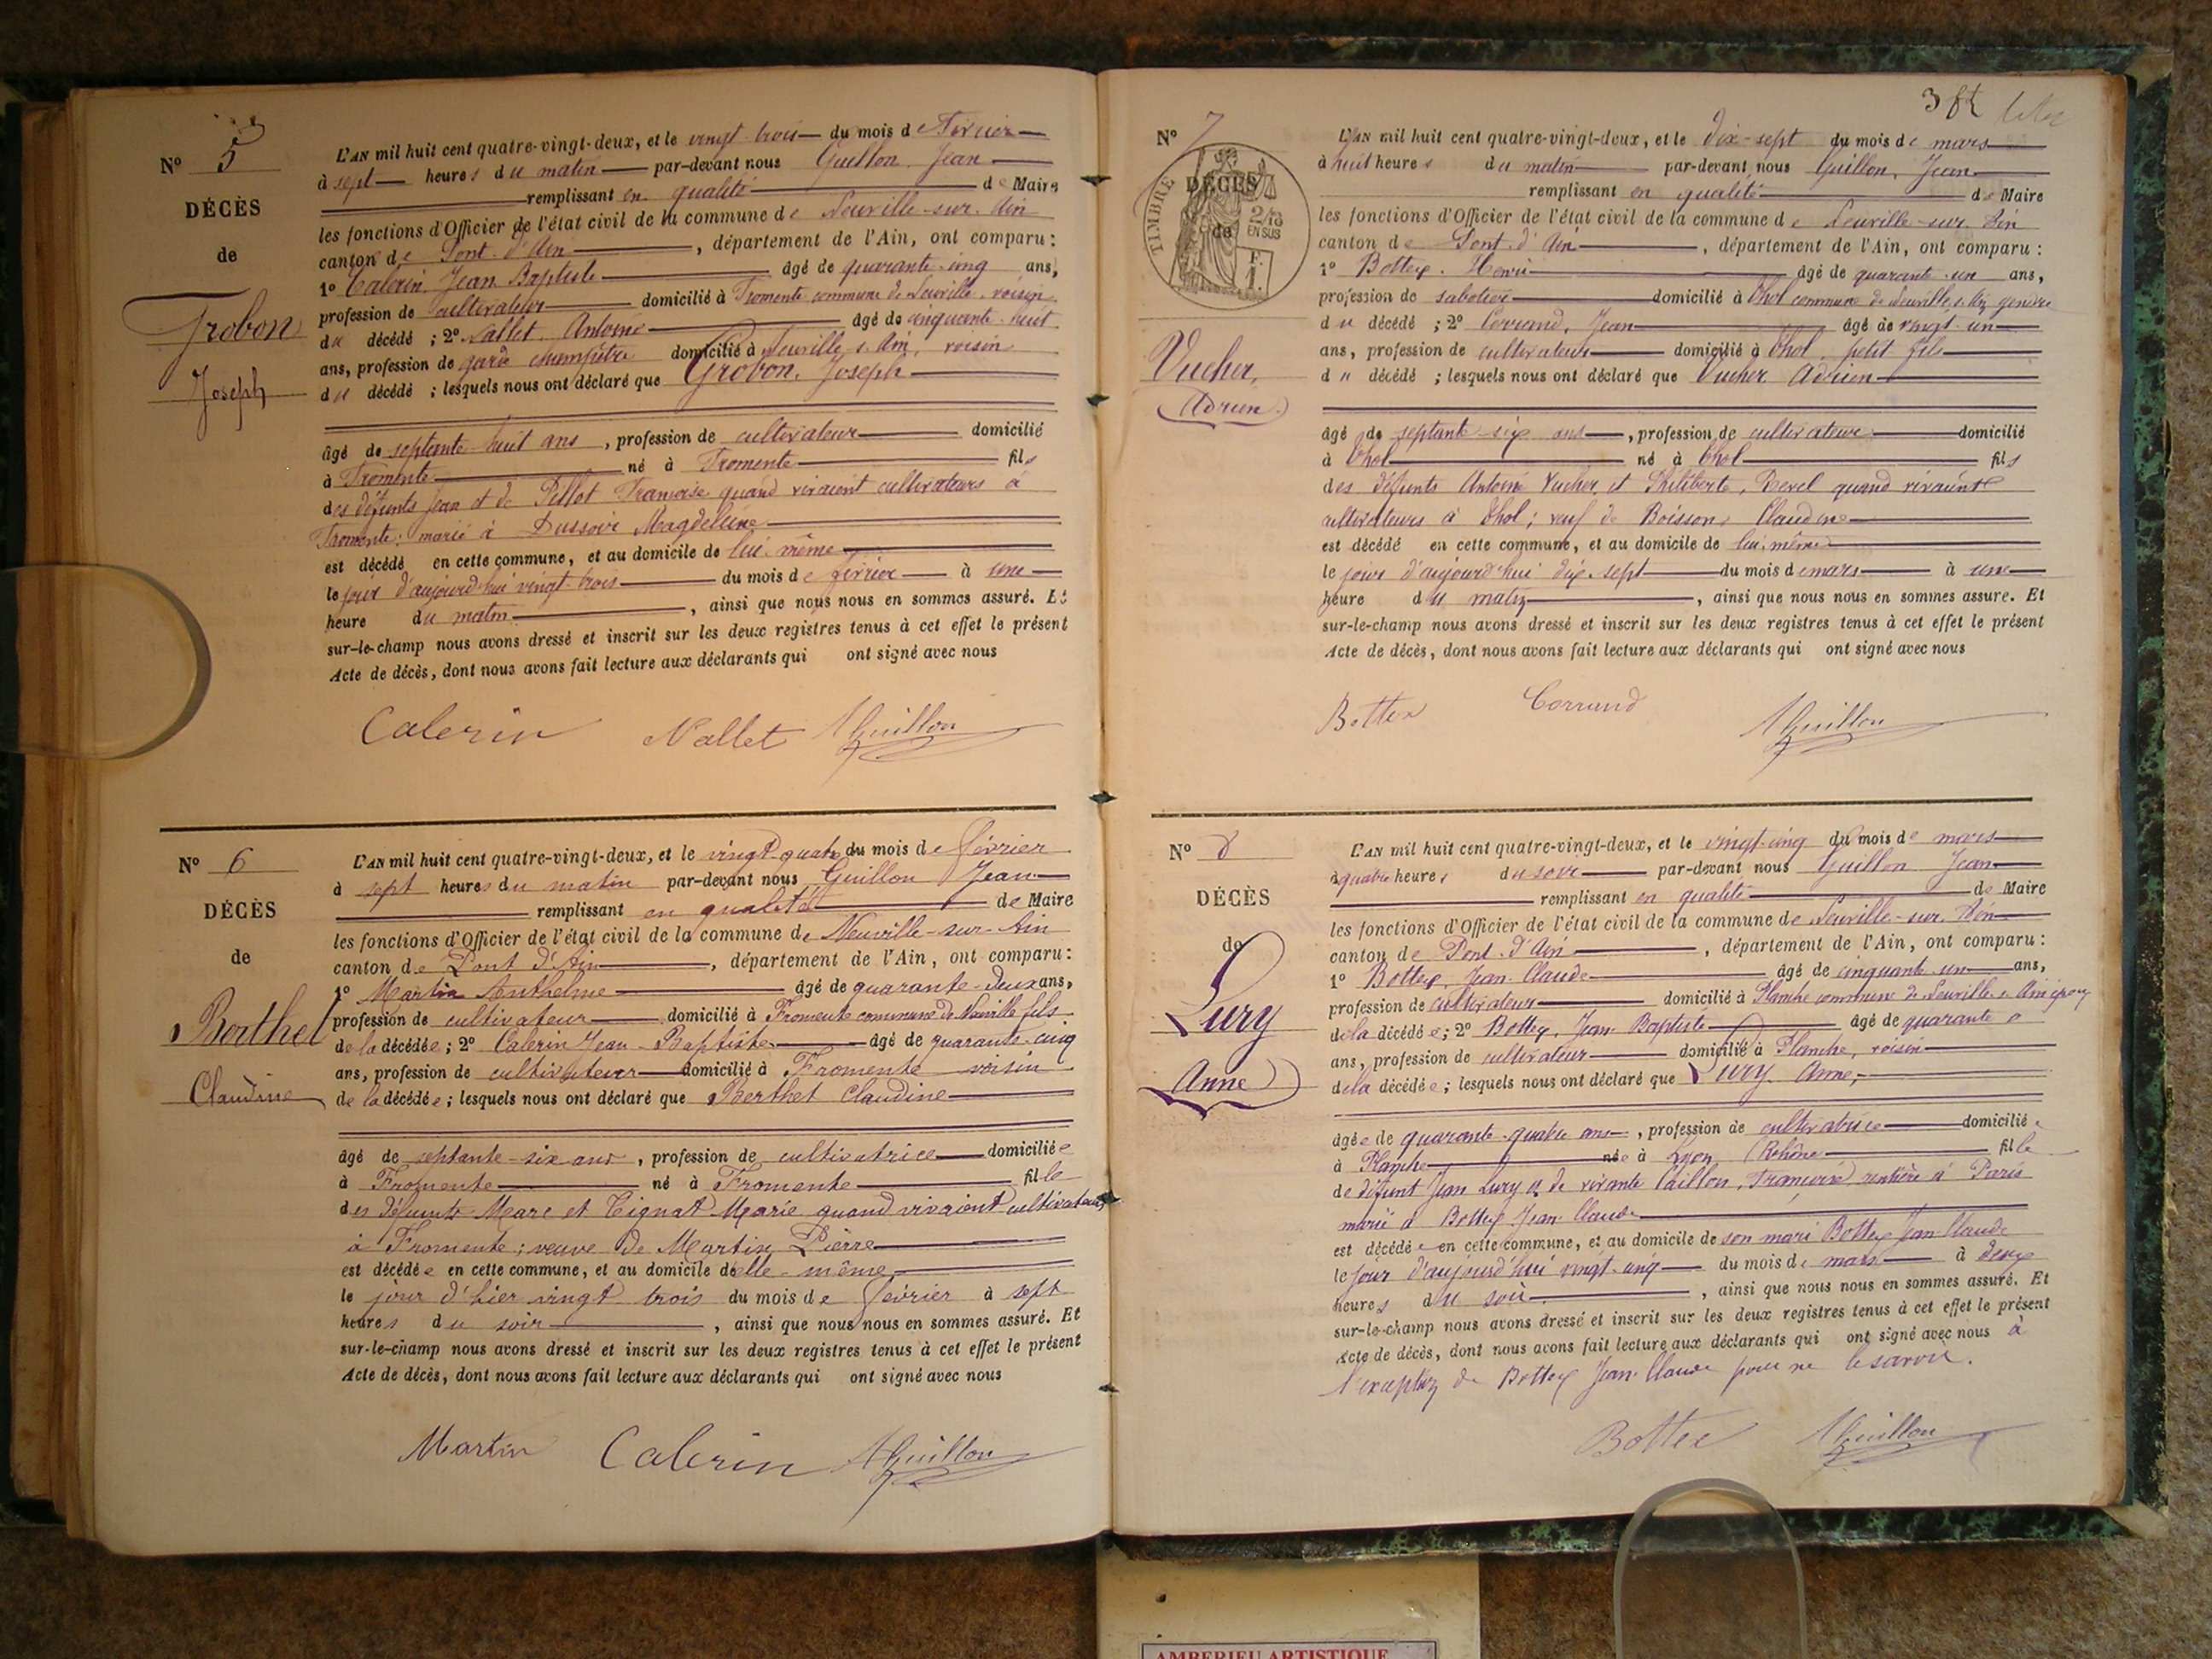 Nº 5
DÉCÈS
de
Grobon
Joseph
L'AN mil huit cent quatre-vingt-deux, et le vingt-trois du mois de Février
à sept heures du matin par-devant nous Guillon Jean
remplissant en qualité de Maire
les fonctions d'Officier de l'état civil de la commune de Neuville-sur-Ain
canton de Pont-d'Ain, département de l'Ain, ont comparu :
1º Calerin Jean Baptiste âgé de quarante-cinq ans,
profession de cultivateur domicilié à Fromente commune de Neuville, voisin
du décédé ; 2º Nallet Antoine âgé de cinquante-huit
ans, profession de garde champêtre domicilié à Neuville s. Ain, voisin
du décédé ; lesquels nous ont déclaré que Grobon, Joseph
âgé de septante-huit ans, profession de cultivateur domicilié
à Fromente né à Fromente fils
des défunts Jean et de Pellet Françoise quand vivaient cultivateurs à
Fromente ; marié à Magdeleine
est décédé en cette commune, et au domicile de lui-même
le jour d'aujourd'hui vingt-trois du mois de février à une
heure du matin, ainsi que nous nous en sommes assuré. Et
sur-le-champ nous avons dressé et inscrit sur les deux registres tenus à cet effet le présent
Acte de décès, dont nous avons fait lecture aux déclarants qui ont signé avec nous
Calerin Nallet JGuillon
Nº 6
DÉCÈS
de
Berthet
Claudine
L'AN mil huit cent quatre-vingt-deux, et le vingt-quatre du mois de février
à sept heures du matin par-devant nous Guillon Jean
remplissant en qualité de Maire
les fonctions d'Officier de l'état civil de la commune de Neuville-sur-Ain
canton de Pont d'Ain, département de l'Ain, ont comparu :
1º Martin Anthelme âgé de quarante-deux ans,
profession de cultivateur domicilié à Fromente commune de Neuville fils
de la décédée ; 2º Calerin Jean-Baptiste âgé de quarante-cinq
ans, profession de cultivateur domicilié à Fromente voisin
de la décédée ; lesquels nous ont déclaré que Berthet Claudine
âgé de septante-six ans, profession de cultivatrice domiciliée
à Fromente né à Fromente fille
des défunts Marc et Tignat Marie quand vivaient cultivateurs
à Fromente ; veuve de Martin Pierre
est décédée en cette commune, et au domicile d'elle-même
le jour d'hier vingt trois du mois de février à sept
heures du soir, ainsi que nous nous en sommes assuré. Et
sur-le-champ nous avons dressé et inscrit sur les deux registres tenus à cet effet le présent
Acte de décès, dont nous avons fait lecture aux déclarants qui ont signé avec nous
Martin Calerin JGuillon
Nº 7
TIMBRE
2/10
EN SUS
F.
1.
DÉCÈS
de
Vucher,
Adrien
L'AN mil huit cent quatre-vingt-deux, et le dix-sept du mois de mars
à huit heures du matin par-devant nous Guillon, Jean
remplissant en qualité de Maire
les fonctions d'Officier de l'état civil de la commune de Neuville-sur-Ain
canton de Pont-d'Ain, département de l'Ain, ont comparu :
1º Bottex Henri âgé de quarante-un ans,
profession de sabotier domicilié à Thol commune de Neuville s. Ain gendre
du décédé ; 2º Corrand, Jean âgé de vingt-un
ans, profession de cultivateur domicilié à Thol, petit-fils
du décédé ; lesquels nous ont déclaré que Vucher Adrien
âgé de septante-six ans, profession de cultivateur domicilié
à Thol né à Thol fils
des défunts Antoine Vucher et Philiberte Revel quand vivaient
cultivateurs à Thol ; veuf de Boisson Claudine
est décédé en cette commune, et au domicile de lui-même
le jour d'aujourd'hui dix-sept du mois de mars à une
heure du matin, ainsi que nous nous en sommes assuré. Et
sur-le-champ nous avons dressé et inscrit sur les deux registres tenus à cet effet le présent
Acte de décès, dont nous avons fait lecture aux déclarants qui ont signé avec nous
Bottex Corrand JGuillon
Nº 8
DÉCÈS
de
Lury
Anne
L'AN mil huit cent quatre-vingt-deux, et le vingt-cinq du mois de mars
à quatre heures du soir par-devant nous Guillon Jean
remplissant en qualité de Maire
les fonctions d'Officier de l'état civil de la commune de Neuville-sur-Ain
canton de Pont-d'Ain, département de l'Ain, ont comparu :
1º Bottex, Jean-Claude âgé de cinquante-un ans,
profession de cultivateur domicilié à Planche commune de Neuville s. Ain époux
de la décédée ; 2º Bottex, Jean-Baptiste âgé de quarante
ans, profession de cultivateur domicilié à Planche, voisin
de la décédée ; lesquels nous ont déclaré que Lury Anne,
âgée de quarante-quatre ans, profession de cultivatrice domiciliée
à Planche née à Lyon (Rhône fille
de défunt Jean Lury et de vivante Caillon, Françoise rentière à Paris
marié à Bottex Jean-Claude
est décédée en cette commune, et au domicile de son mari Bottex Jean-Claude
le jour d'aujourd'hui vingt-cinq du mois de mars à deux
heures du soir, ainsi que nous nous en sommes assuré. Et
sur-le-champ nous avons dressé et inscrit sur les deux registres tenus à cet effet le présent
Acte de décès, dont nous avons fait lecture aux déclarants qui ont signé avec nous à
l'exception de Bottex Jean-Claude pour ne le savoir.
Bottex JGuillon
AMBERIEU ARTISTIQUE